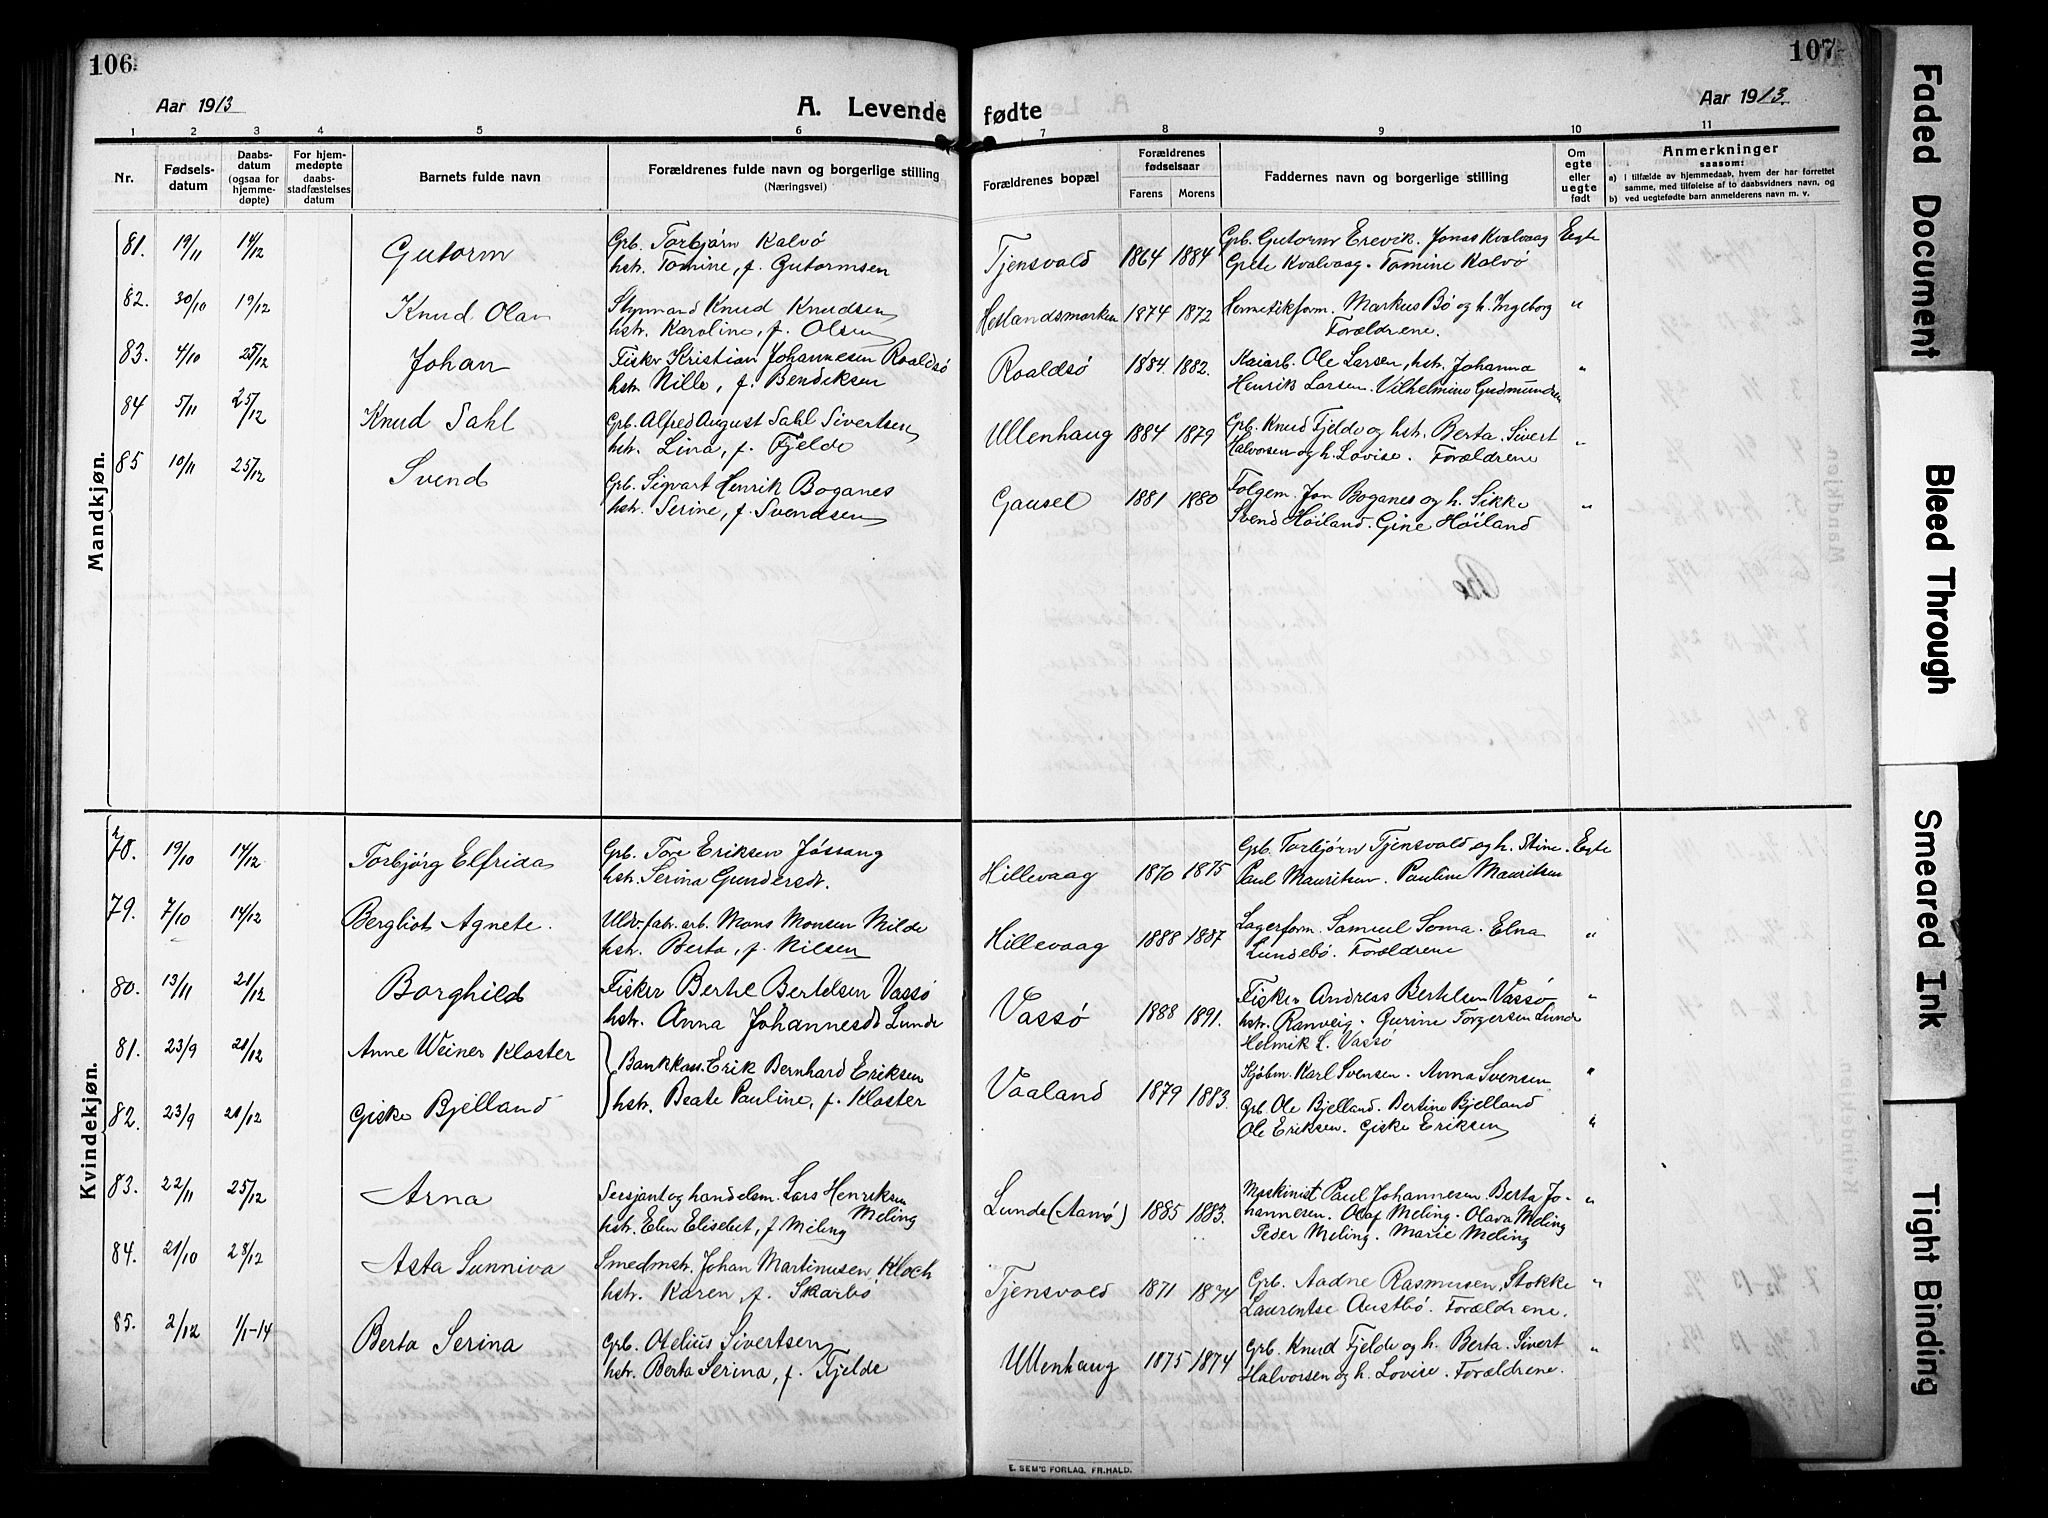 106
107
Aar 1913
A. Levende fødte
Aar 1913.
1 2 3 4 5 6 7 8 9 10 11
Nr.
Fødsels-
datum
Daabs-
datum
(ogsaa for
hjemme-
døpte)
For hjem-
medøpte
daabs-
stadfæstelses
datum
Barnets fulde navn
Forældrenes fulde navn og borgerlige stilling
(Næringsvei)
Forældrenes bopæl
Forældrenes
fødselsaar
Farens Morens
Faddernes navn og borgerlige stilling
Om
egte
eller
uegte
født
Anmerkninger
saasom:
a) I tilfælde av hjemmedaab, hvem der har forrettet
samme, med tilføielse af to daabsvidners navn, og
b) ved uegtefødte barn anmelderens navn m. v.
Mandkjøn.
81. 19/11 14/12 Gutorm Grb. Torbjørn Kalvø Tjensvold 1864 1884 Grb. Gutorm Erevik. Jonas Kvalvaag Egte
hstr. Tomine, f. Gutormsen Grete Kvalvaag. Tomine Kalvø
82. 30/10 19/12 Knud Olav Styrmand Knud Knudsen Hetlandsmarken 1874 1872 Hermetikform. Markus Bø og h. Ingeborg "
hstr. Karoline, f. Olsen Forældrene.
83. 4/10 25/12 Johan Fisker Kristian Johannesen Roaldsø Roaldsø 1884. 1882. Kaiarb. Ole Larsen, hstr. Johanna "
hstr. Nille, f. Bendiksen Henrik Larsen. Vilhelmine Gudmundsen
84 5/11 25/12 Knud Sahl Grb. Alfred August Sahl Sivertsen Ullenhaug 1884 1879 Grb. Knud Fjelde og hstr. Berta. Sivert "
hstr. Lina, f. Fjelde Halvorsen og h. Lovise. Forældrene
85 10/11 25/12 Svend Grb. Sigvart Henrik Boganes Gausel 1881 1880 Folgem. Jon Boganes og h. Sikke "
hstr. Serine, f. Svendsen Svend Høiland. Gine Høiland
Kvindekjøn.
78. 19/10 14/12 Torbjørg Elfrida Grb. Tore Eriksen Jøssang Hillevaag 1870 1875 Grb. Torbjørn Tjensvold og h. Stine. Egte
hstr. Serina Gundersdt. Paul Mauritsen. Pauline Mauritsen
79. 7/10 14/12 Bergliot Agnete. Uldv.fabr. arb. Mons Monsen Milde Hillevaag 1888 1887 Lagerform. Samuel Soma. Elna "
hstr. Berta, f. Nilsen Lundebø. Forældrene
80. 13/11 21/12 Borghild Fisker Bertel Bertelsen Vassø Vassø 1888 1891. Fisker Andreas Bertelsen Vassø "
hstr. Anna Johannesdt Lunde hstr. Ranveig. Gurine Torgersen Lunde
Helmik L. Vassø
81. 23/9 21/12 Anne Weiner Kloster Bankkass. Erik Bernhard Eriksen Vaaland 1879 1883. Kjøbm. Karl Svensen. Anna Svensen "
82. 23/9 21/12 Giske Bjelland hstr. Beate Pauline, f. Kloster Grb. Ole Bjelland. Bertine Bjelland
Ole Eriksen. Giske Eriksen "
83. 22/11 25/12 Arna Sersjant og handelsm. Lars Henriksen Meling Lunde (Aamø) 1885 1883. Maskinist Paul Johannesen. Berta Jo- "
hstr. Elen Elisebet, f Meling hannesen. Olaf Meling. Olava Meling
Peder Meling. Marie Meling
84. 21/10 28/12 Asta Sunniva Smedmstr. Johan Martinusen Kloch Tjensvold 1871 1874 Grb. Aadne Rasmussen, Stokke "
hstr. Karen, f. Skaarbø Laurentse Austbø. Forældrene.
85. 2/12 1/1-14 Berta Serina Grb. Otelius Sivertsen Ullenhaug 1875 1874 Grb. Knud Fjelde og h. Berta. Sivert "
hstr. Berta Serina, f. Fjelde Halvorsen og h. Lovise. Forældrene.
E. SEM'S FORLAG, FR.HALD.
Faded Document
Bleed Through
Smeared Ink
Tight Binding